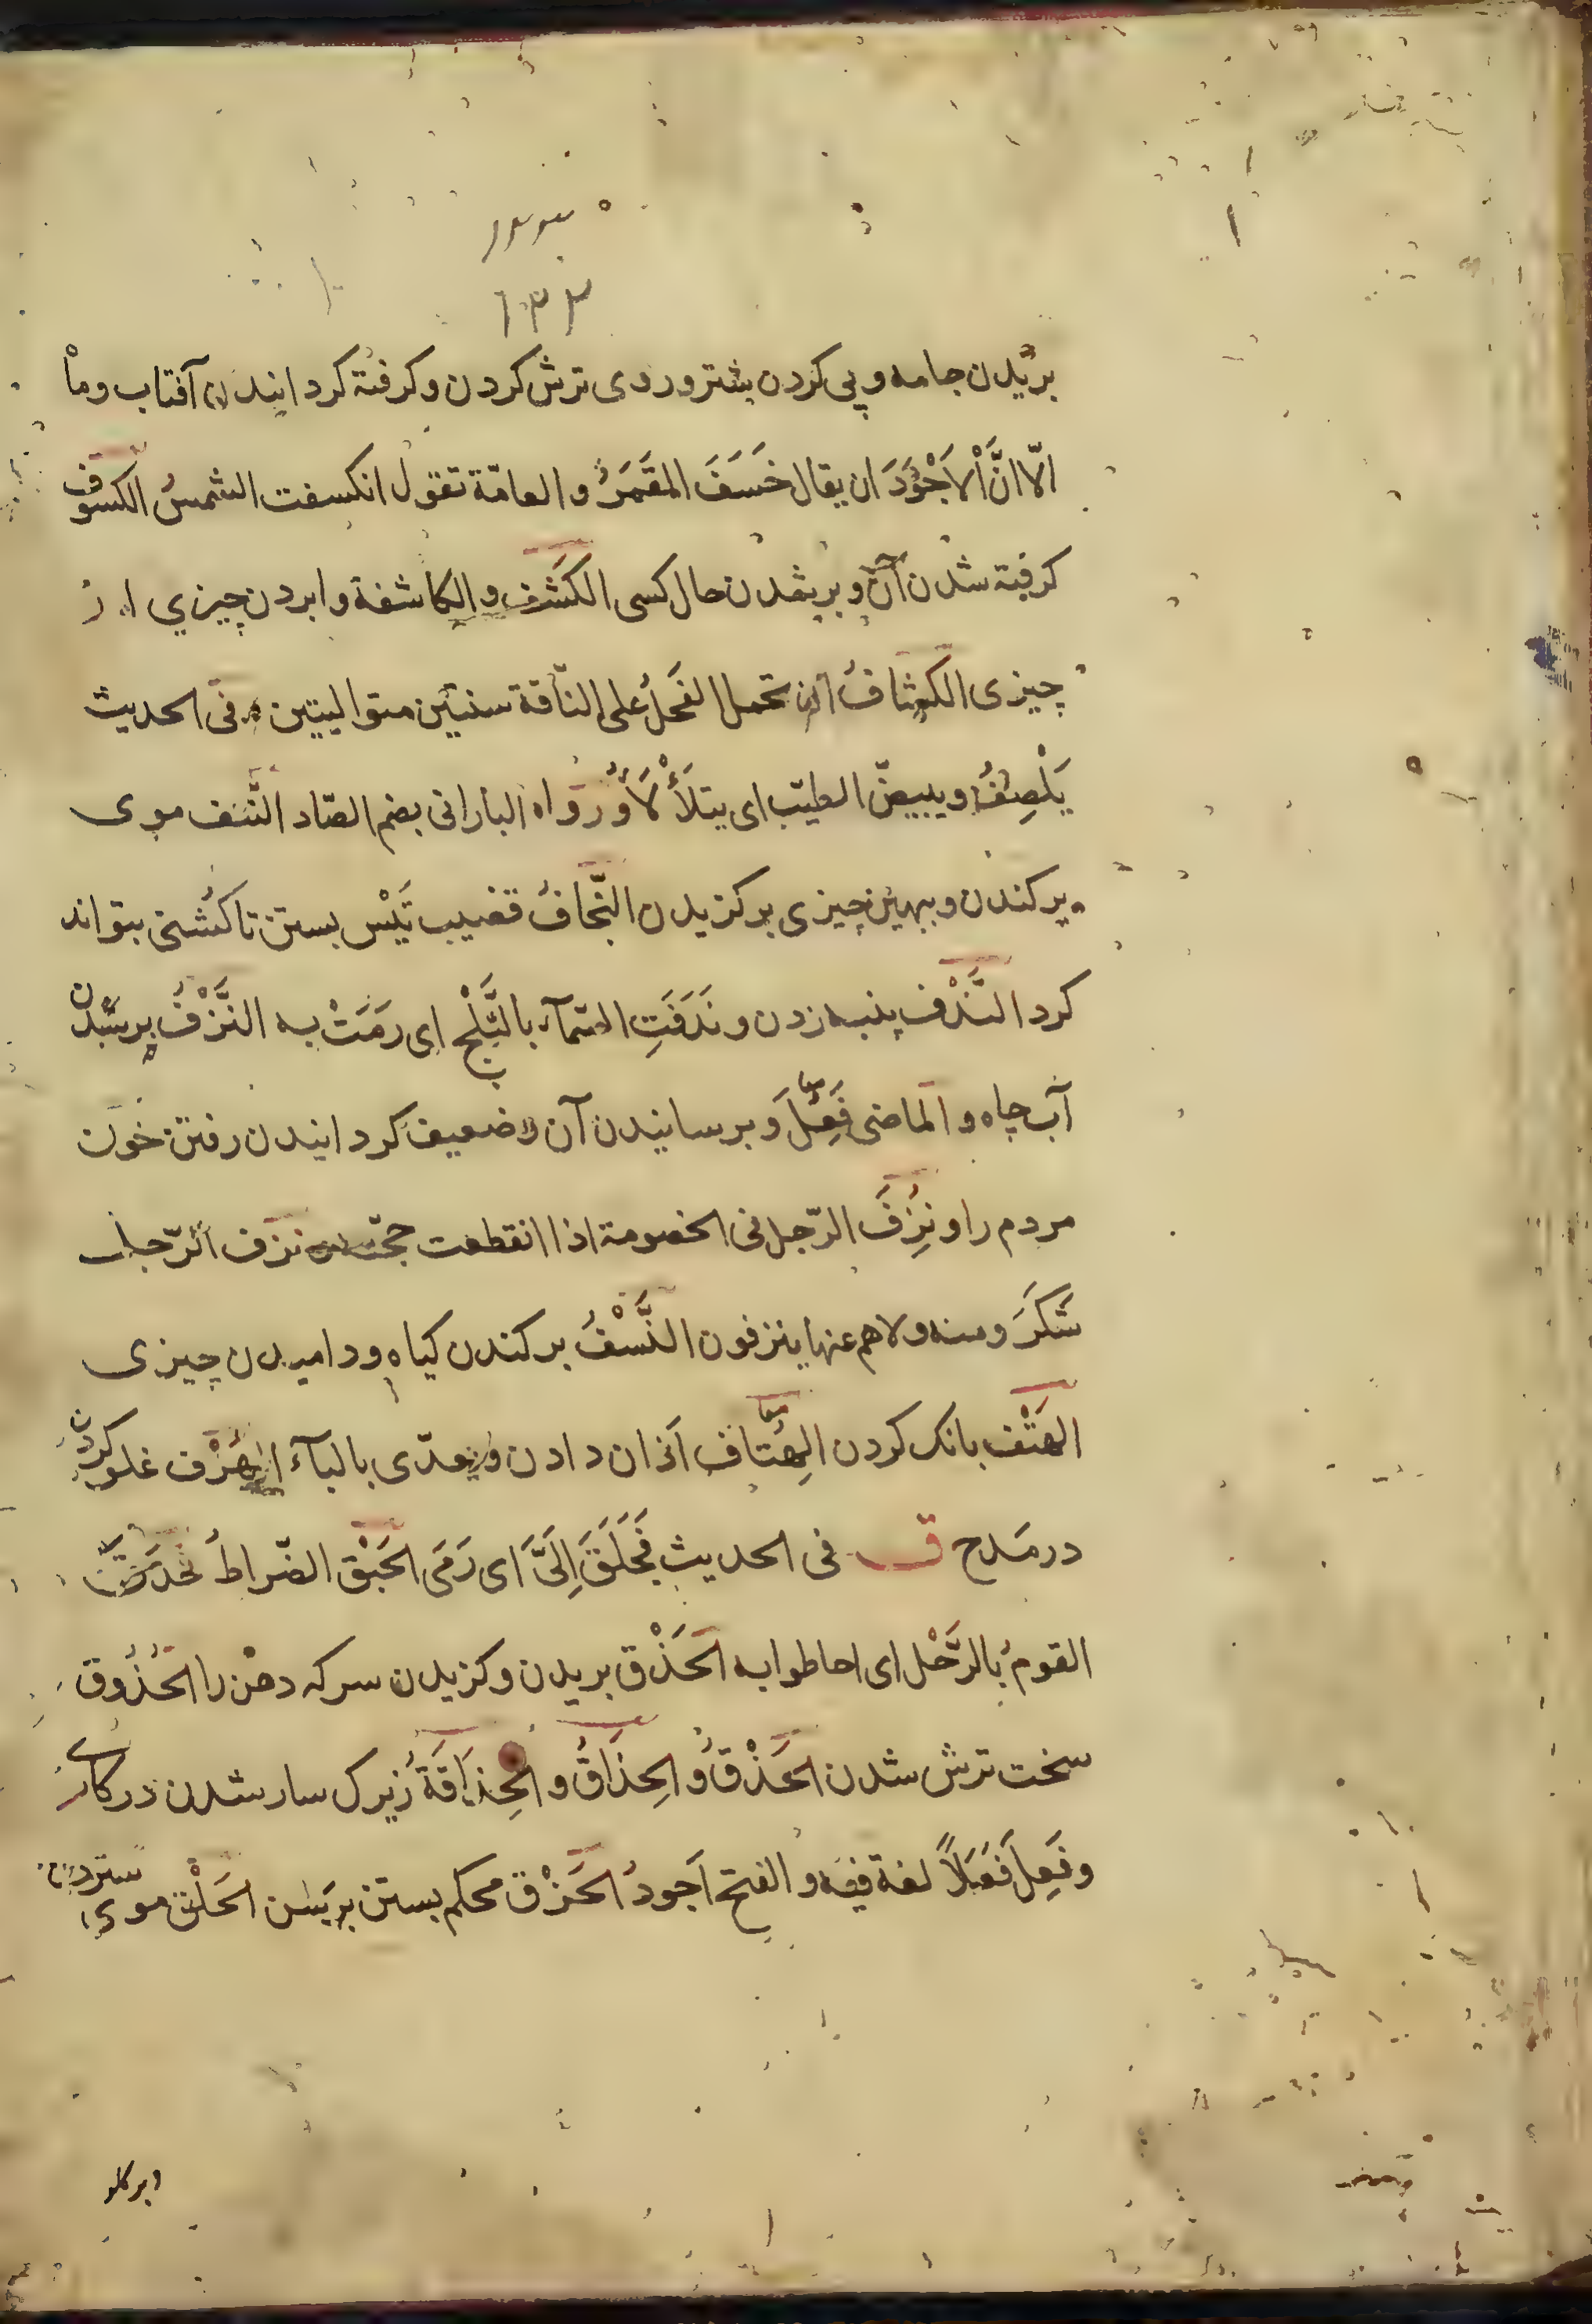 ۱۳۳
بریدن جامه و پی کردن شتر و روی ترش کردن و کرفتة کردانیدن آفتاب و ماْ
الّا انَّ اْلاَجْوَدَ ان یقال خَسَفَ القَمَرُ و العامّة تقول انکسفت الشمسُ الکسوف
کرفتة شدن آن و بریشدن حال کسی الکَشف و الکاشفة وابردن چیزي از
چیزی الکِشافُ ان تحمل الفَحلُ علی النّاقة سنتین متوالیتین فی الحدیث
یَلْصِفُ وبیصّ الطیّب ای یتلَأْلَأُ و رواه البارانی بضم الصّاد النَّتف موی
برکندن و بهین چیزی برکزیدن النِّجافُ قضیب تَیْس بستن تا کُشنی بتواند
کرد النَّدْف پنبه زدن و نَدَفَتِ السّمآء بالثَّلْج ای رَمَتْ به النَّزْفُ برسیدن
آب چاه و الماضی فَعِلَ و برسانیدن آن و ضعیف کردانیدن رفتن خون
مردم را و نُزِفَ الرّجل فی الخصومة اذا انقطعت حجّته نزف الرّجل
سَکَرَ ومنه ولا هم عنها ینزفون النَّسْفُ برکندن کیاه و دامیدن چیزی
الهَتْف بانک کردن الهِتاف اذان دادن و یعدّی بالبآء الهَرْف غلو کردن
در مَدح ق فی الحدیث فَحَلَقَ اِلَیَّ ای رَمَی الحَبْق الضّراطُ حَدَقَ
القومُ بالرَّجُل ای احاطوا به الحَذْق بریدن و کزیدن سرکه دهْن را الحُذُوق
سخت ترش شدن الحَذْقُ و الحِذَاقُ و الحِذاقَةُ زیرک سار شدن در کاری
وفَعِلَ فَعَلاً لغة فیه و الفتح اَجودُ الحَزْق محکم بستن برَسَن الحَلْق موی ستردن